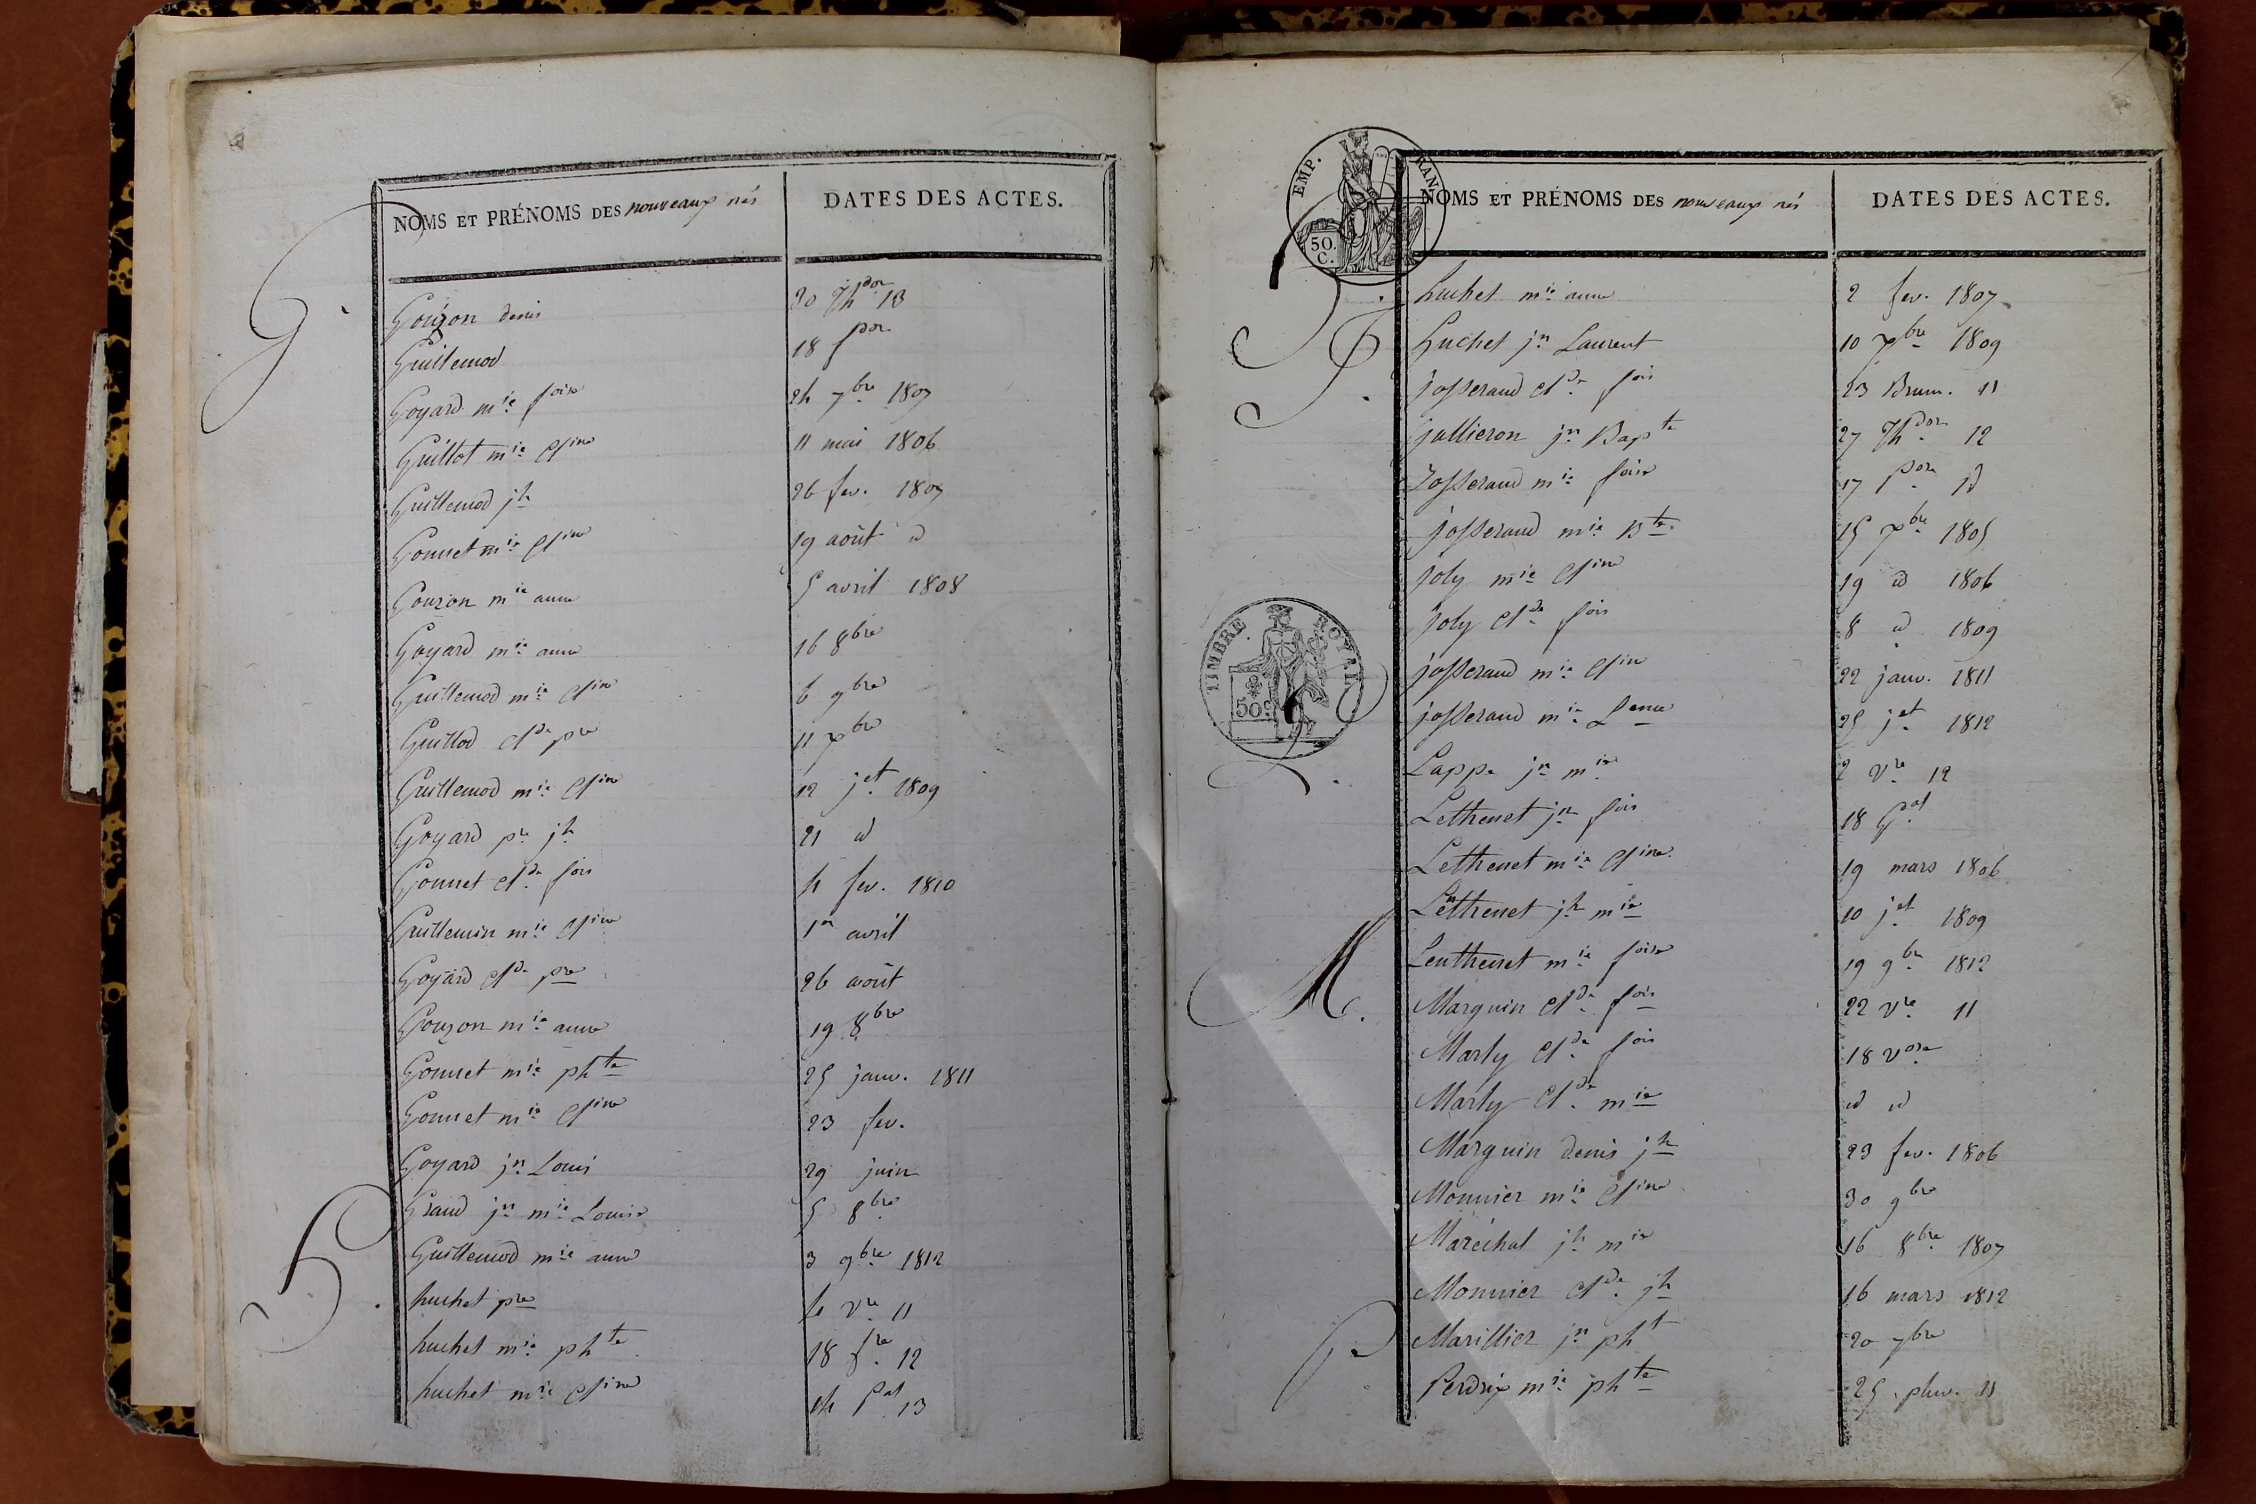 NOMS ET PRÉNOMS DES nouveaux nés
DATES DES ACTES.
G.
Gouzon denis 30 Thdor 13
Guillemod 18 for
Goyard mie foise 24 7bre 1807
Guillot mie Cline 11 mai 1806
Guillemod jh 26 fev. 1807
Gonnet mie Cline 19 août id
Gouzon mie anne 5 avril 1808
Goyard mie anne 16 8bre
Guillemod mie Cline 6 9bre
Guillod Clde pre 11 xbre
Guillemod mie Cline 12 jet 1809
Goyard pre jh 21 id
Gonnet Clde fois 4 fev. 1810
Guillemin mie Cline 1er avril
Goyard Clde pre 26 août
Gouzon mie anne 19 8bre
Gonnet mie phte 25 janv. 1811
Gonnet mie Cline 23 fev.
Goyard jn Louis 29 juin
Graud jn mie Louis 5 8bre
Guillemod mie anne 3 9bre 1812
h.
huchet pre 4 vre 11
huchet mie phte 18 fre 12
huchet mie Cline 24 Pal 13
EMP. FRAN
50. C.
NOMS ET PRÉNOMS DES nouveaux nés
DATES DES ACTES.
huchet mie anne 2 fev. 1807
huchet jn Laurent 10 xbre 1809
J.
josserand Clde fois 23 Brum. 11
jallieron jn Bapte 27 Thdor 12
Josserand mie foise 17 for id
josserand mie Bte 15 xbre 1805
joly mie Cline 19 id 1806
joly Clde fois 8 id 1809
TIMBRE ROYAL
50c
josserand mie Cline 22 janv. 1811
josserand mie 25 jet 1812
L.
Lappe jn mie 2 vre 12
Lethenet jn fois 18 Gal
Lethenet mie Cline. 19 mars 1806
Lenthenet jh mie 10 jet 1809
Lenthenet mie foise 19 9bre 1812
M.
Marguin Clde fois 22 vre 11
Marly Clde fois 18 vose
Marly Cl. mie id id
Marguin denis jh 23 fev. 1806
Monnier mie Cline 30 9bre
Maréchal jh mie 16 8bre 1807
Monnier Clde jh 16 mars 1812
Marillier jn pht 20 7bre
P.
Perdrix mie phte 25 pluv. 11